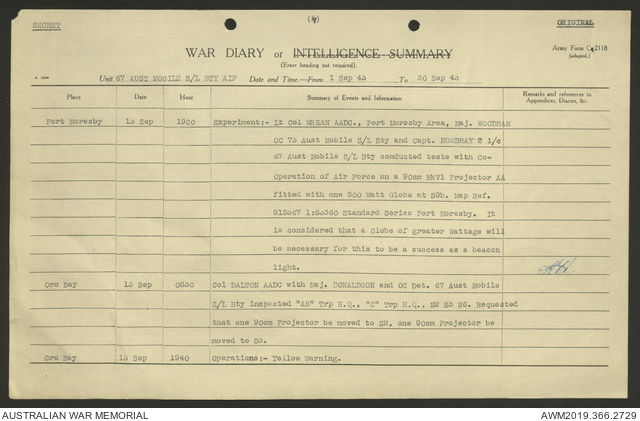 SECRET
(4)
ORIGINAL
WAR DIARY or INTELLIGENCE SUMMARY
(Erase heading not required).
Army Form C.2118
(adapted.)
Unit 67 AUST MOBILE S/L BTY AIF Date and Time.—From 1 Sep 43 To 30 Sep 43
Place Date Hour Summary of Events and Information Remarks and references to
Appendices, Diaries, &c.
Port Moresby 13 Sep 1900 Experiment:- Lt Col WREAN AADC., Port Moresby Area, Maj. WOODHAM
OC 73 Aust Mobile S/L Bty and Capt. MOWBRAY 2 i/c
67 Aust Mobile S/L Bty conducted tests with Co-
Operation of Air Force on a 90cm MkVl Projector AA
fitted with one 500 Watt Globe at S9b. Map Ref.
915367 1:63360 Standard Series Port Moresby. It
is considered that a Globe of greater Wattage will
be necessary for this to be a success as a beacon
light.
Oro Bay 13 Sep 0830 Col DALTON AADC with Maj. DONALDSON and OC Det. 67 Aust Mobile
S/L Bty inspected "AB" Trp H.Q., "C" Trp H.Q., S2 S3 S6. Requested
that one 90cm Projector be moved to S2, one 90cm Projector be
moved to S3.
Oro Bay 13 Sep 1940 Operations:- Yellow Warning.
AUSTRALIAN WAR MEMORIAL
AWM2019.366.2729